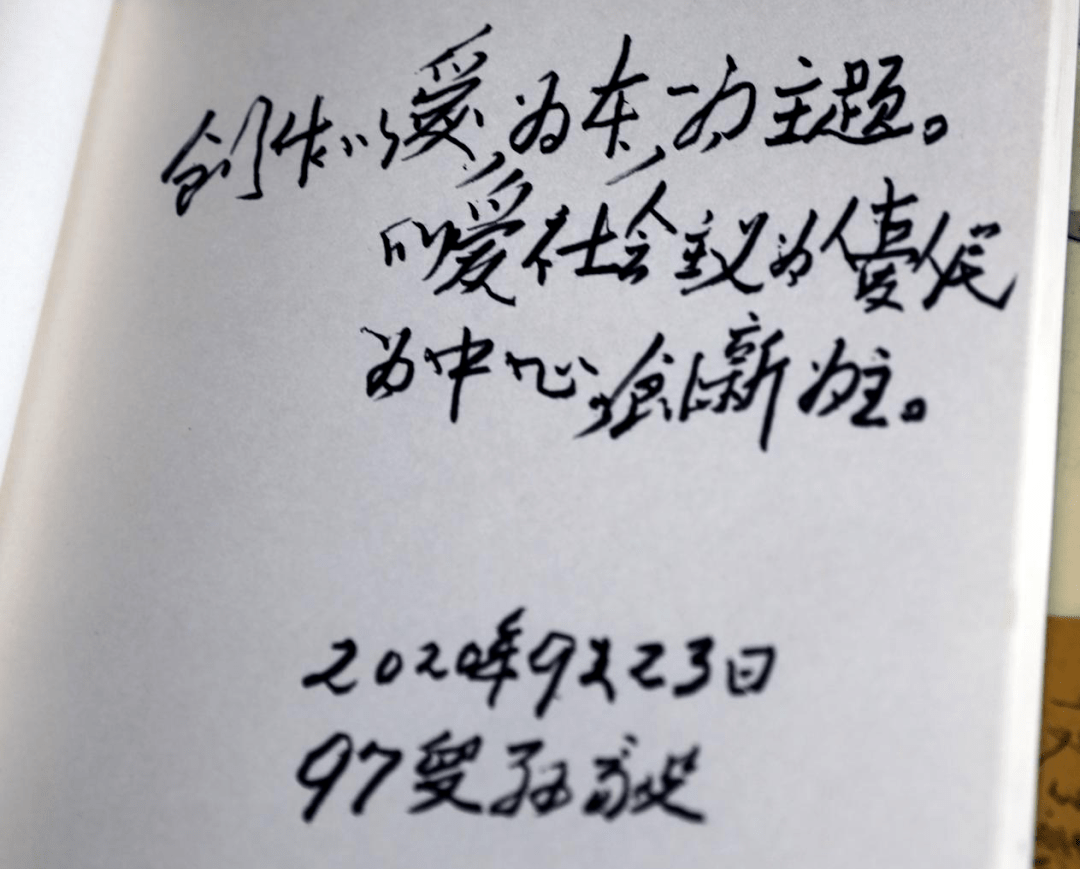 创作以愛为本,为主题。
爱社会主义为
为中心,创新为主。
2020年9月23日
97叟孙毅